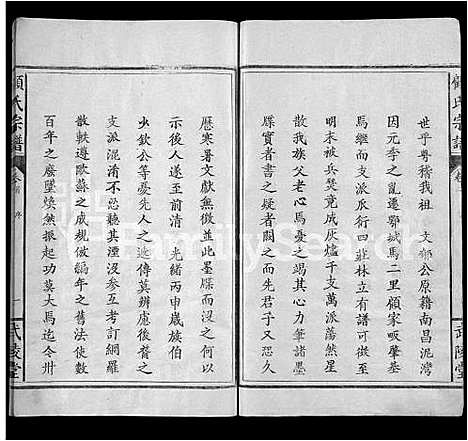 顧氏宗譜
卷首
武陵堂
世乎尊稽我祖 文郁公原籍南昌泥灣
因元季之亂遷鄂城馬二里顧家畈肇基
馬繼而支派衍衍四莊林立有譜可徵自
明末被兵燹竟成灰爐千支萬派蕩然星
散我族父老心馬憂之竭其心力筆諸墨
牒實者書之疑者闕之而先君子又恐久
歷寒暑文獻無徵並此墨牒而沒之無以
示後人遂至前清 光緒丙申歲族伯
少欽公等憂先人之遺傳莫辨慮後裔之
支派混淆不忍聽其湮沒參互考訂網羅
散軼遵歐蘇之成規倣編年之舊法使數
百年之廢墜煥然振起功莫大馬迄今卅
顧氏宗譜
卷首 序
一
武陵堂
FamilySearch